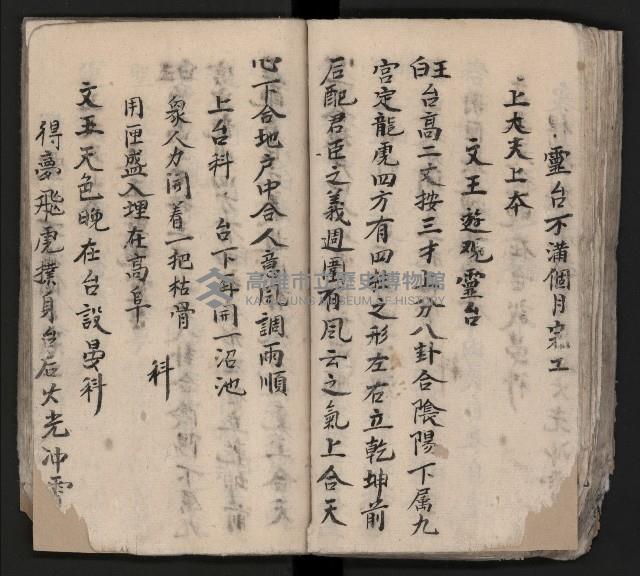 灵台不滿個月完工
上大夫上本
文王遊观灵台
王白台高二丈按三才 分八卦合陰陽下属九
宮定龍虎四方有四 之形左右立乾坤前
后配君臣之義週圍有風云之氣上合天
心下合地户中合人意 調雨順
上台科 台下再開一沼池
衆人力闹着一把枯骨 科
用匣盛入埋在高阜
文王天色晚在台設晏科
得夢飛虎撲身台后火光冲
高雄市立歷史博物館
KAOHSIUNG MUSEUM OF HISTORY